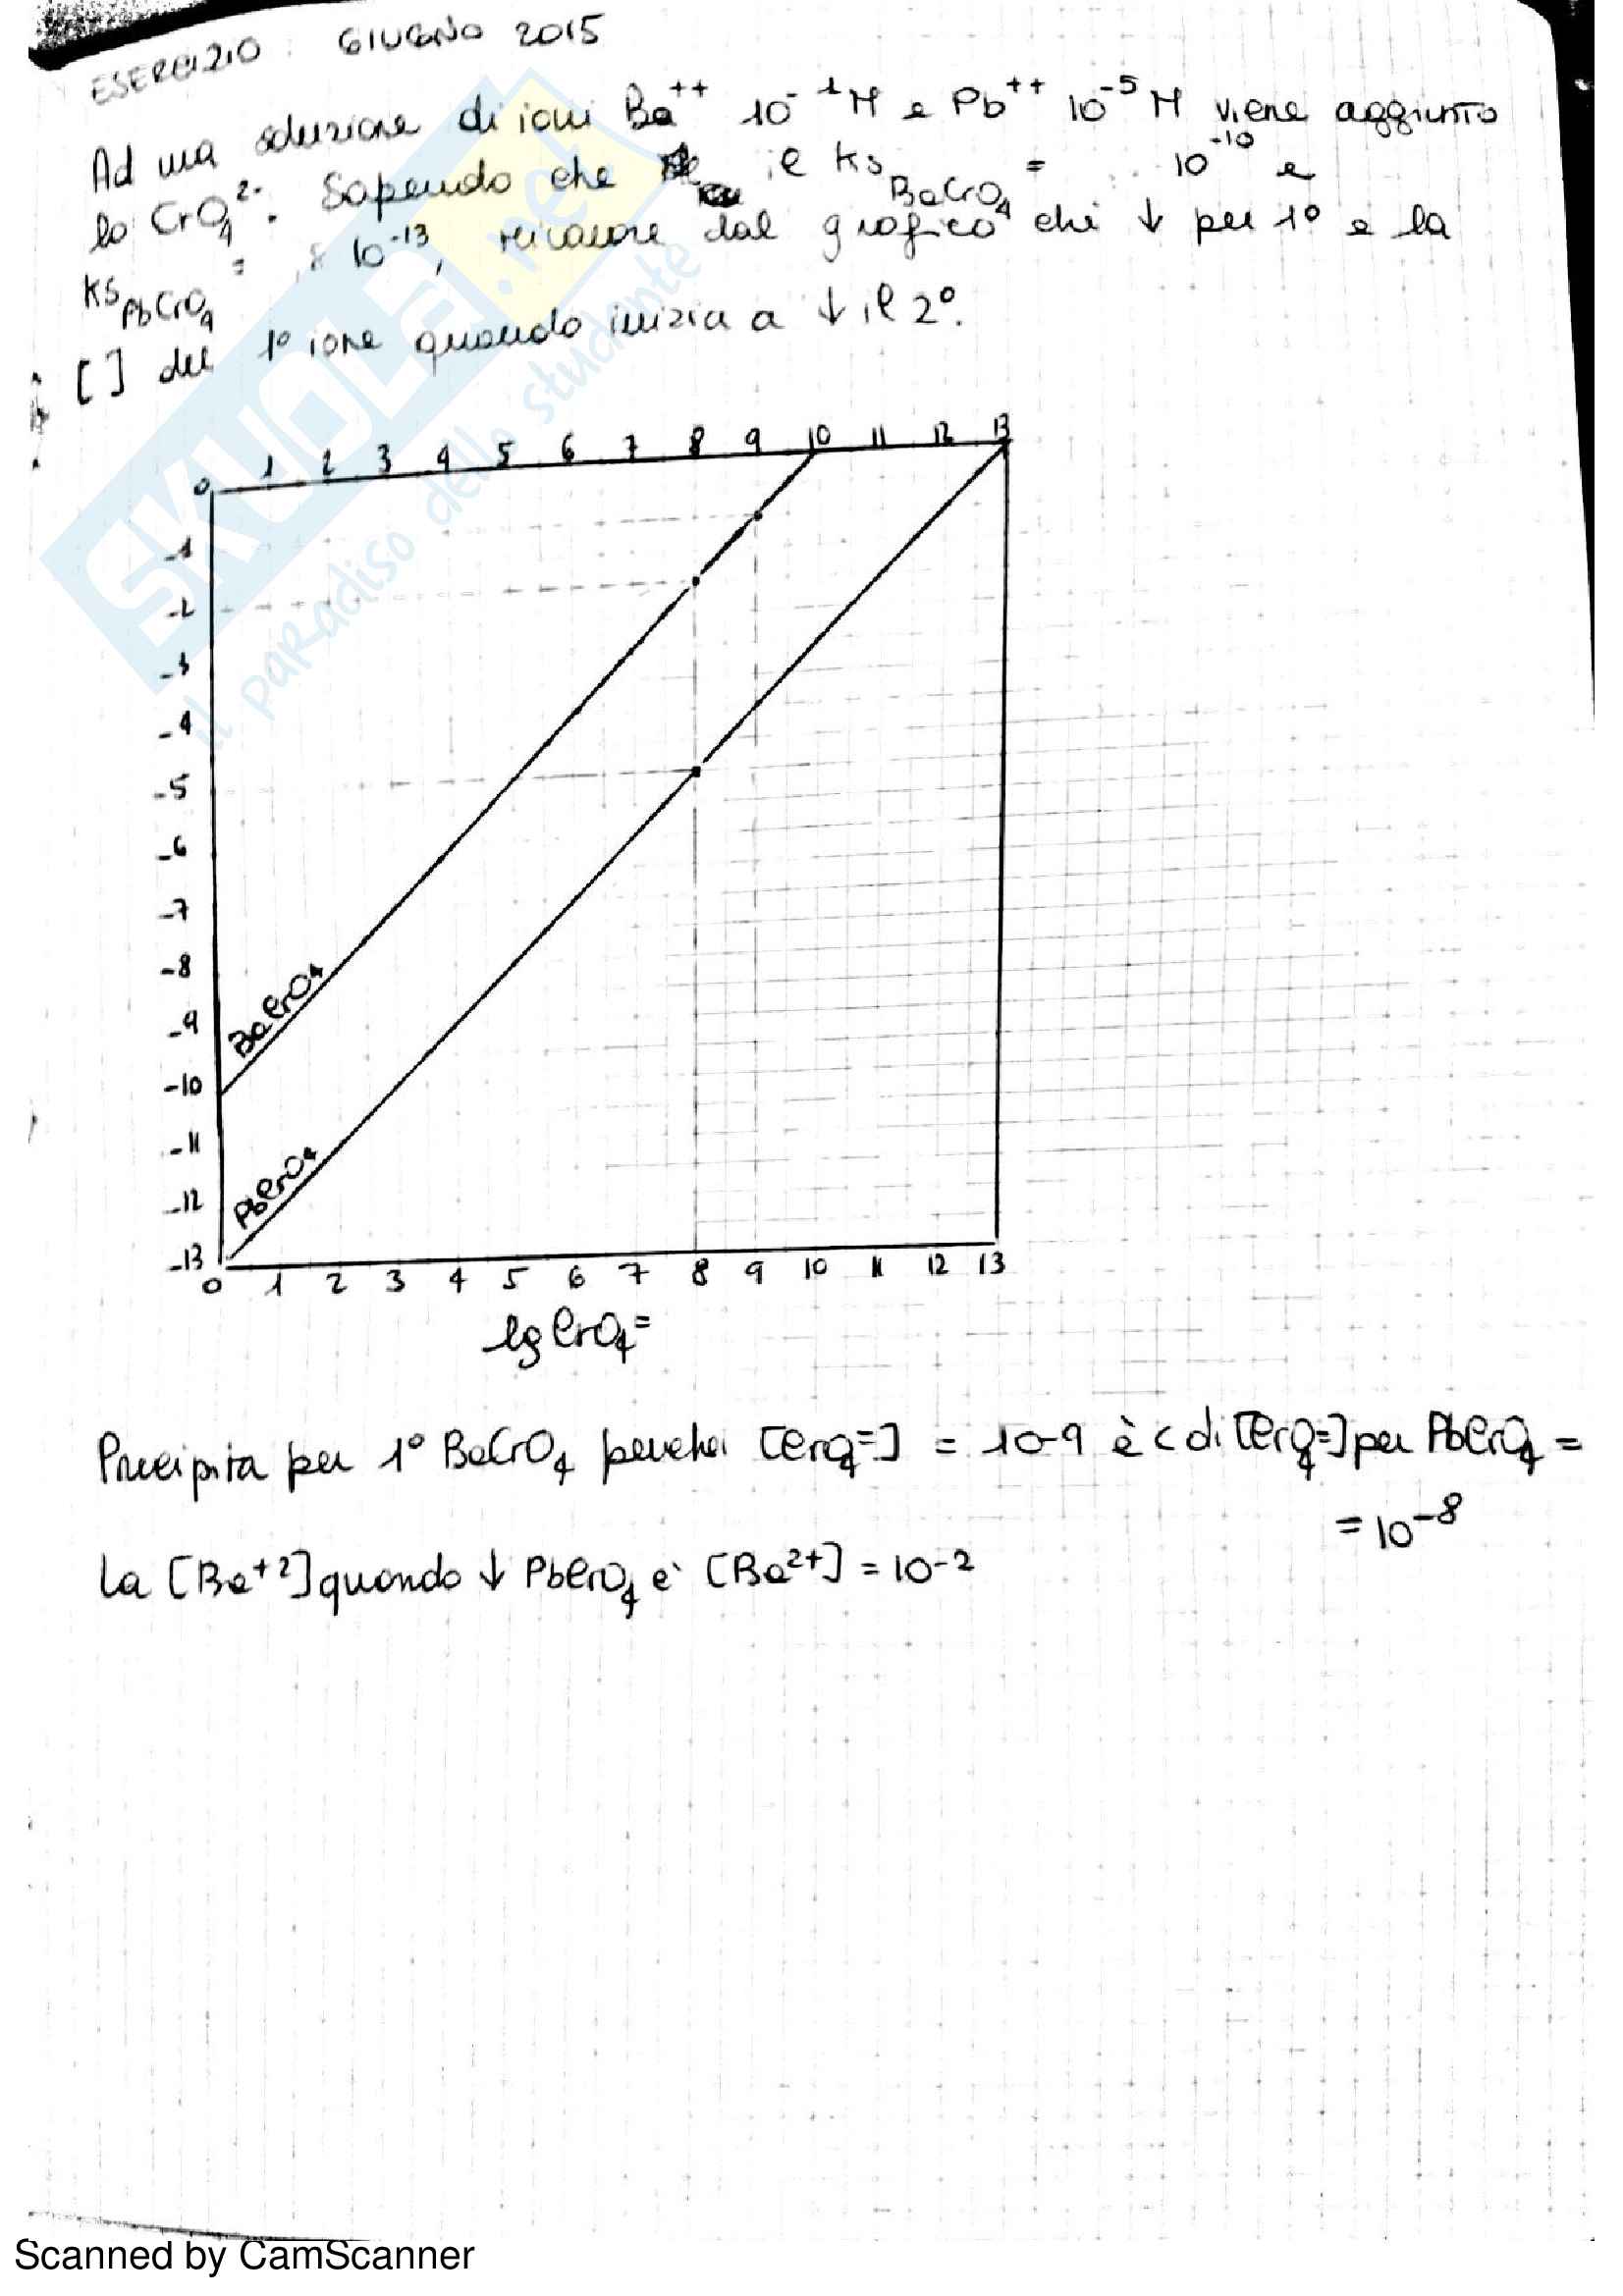 ESERCIZIO: GIUGNO 2015
Ad una soluzione di ioni Ba++ 10-1 M e Pb++ 10-5 M viene aggiunto
lo CrO4 2-. Sapendo che il Ks BaCrO4 = 10-10 e
Ks PbCrO4 = 10-13, ricavare dal grafico chi ↓ per 1° e la
[ ] del 1° ione quando inizia a ↓ il 2°.
SKUOLA.net
il paradiso dello studente
0 1 2 3 4 5 6 7 8 9 10 11 12 13
-1
-2
-3
-4
-5
-6
-7
-8
-9
-10
-11
-12
-13
BaCrO4
PbCrO4
0 1 2 3 4 5 6 7 8 9 10 11 12 13
lg CrO4=
Precipita per 1° BaCrO4 perchè [CrO4=] = 10-9 è < di [CrO4=] per PbCrO4 =
= 10-8
La [Ba+2] quando ↓ PbCrO4 è [Ba2+] = 10-2
Scanned by CamScanner